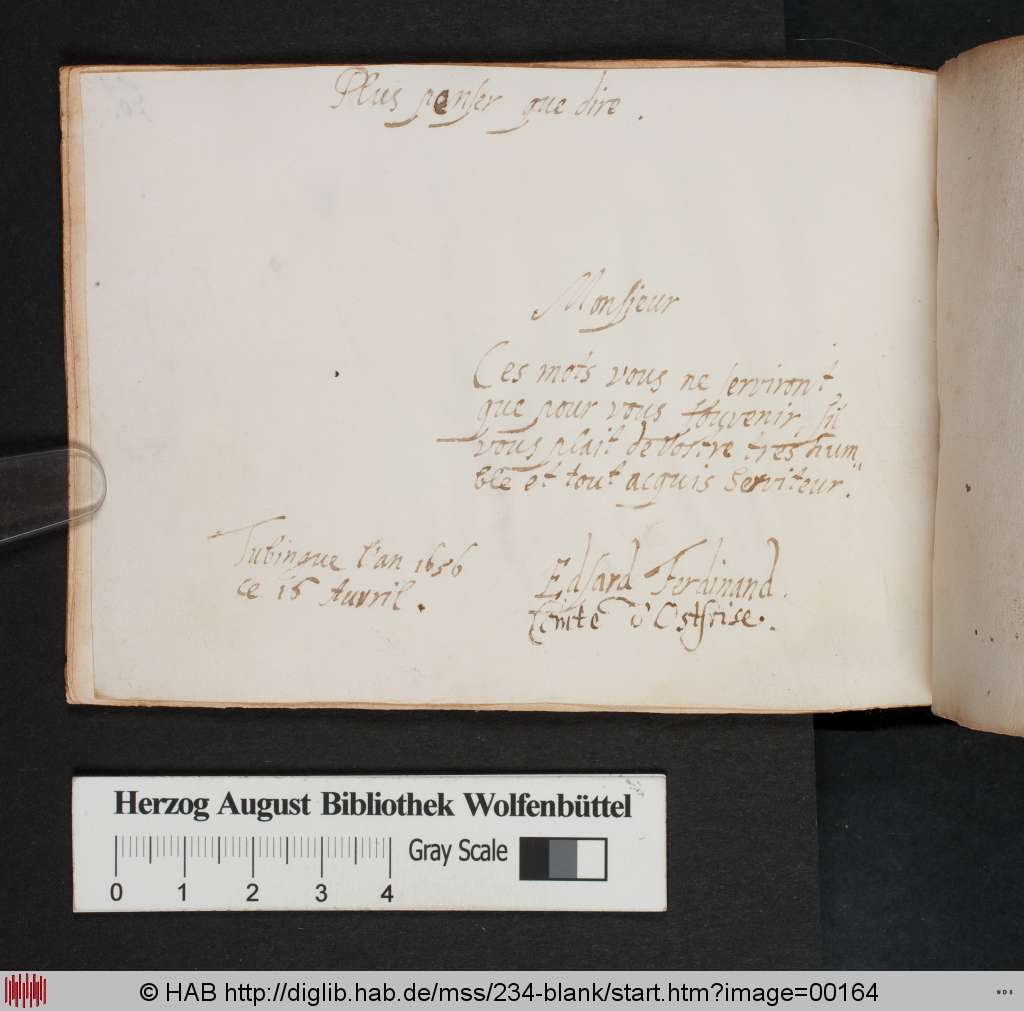 Plus penser que dire.
Monsieur
Ces mots vous ne serviront
que pour vous souvenir, s'il
vous plait de vostre tres hum
ble et tout acquis Serviteur.
Tubingue l'an 1656
ce 16 Auvril.
Edsard Ferdinand.
Comte d'Ostfrise.
Herzog August Bibliothek Wolfenbüttel
Gray Scale
0 1 2 3 4
© HAB http://diglib.hab.de/mss/234-blank/start.htm?image=00164